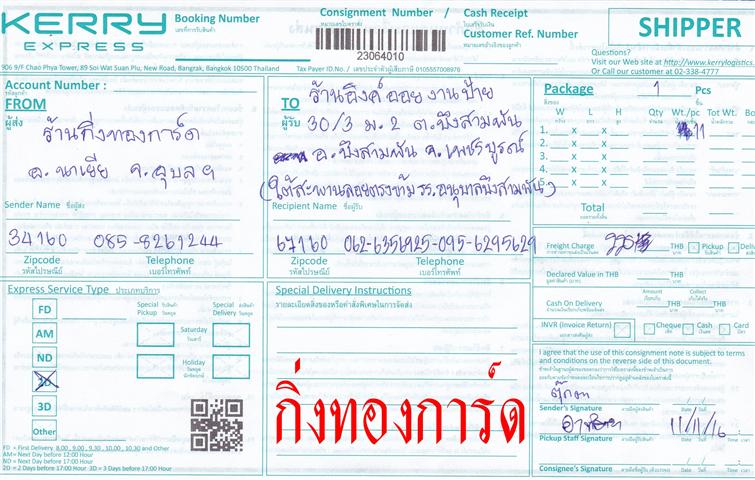 KERRY
EXPRESS
Booking Number
เลขที่การรับสินค้า
Consignment Number /
หมายเลขใบตราส่ง
23064010
Cash Receipt
ใบเสร็จรับเงิน
Customer Ref. Number
หมายเลขอ้างอิงของลูกค้า
SHIPPER
Questions?
Visit our Web site at http://www.kerrylogistics.
Or Call our customer at 02-338-4777
906 9/F Chao Phya Tower, 89 Soi Wat Suan Plu, New Road, Bangrak, Bangkok 10500 Thailand
Tax Payer ID.No. / เลขประจำตัวผู้เสียภาษี 0105557008976
Account Number :
FROM
ผู้ส่ง
ร้านกิ่งทองการ์ด
อ. นาเยีย จ. อุบลฯ
Sender Name ชื่อผู้ส่ง
34160 085-8261244
Zipcode Telephone
รหัสไปรษณีย์ เบอร์โทรศัพท์
TO
ผู้รับ
ร้านอิงค์ออย งานป้าย
30/3 ม. 2 ต. บึงสามพัน
อ. บึงสามพัน จ. เพชรบูรณ์
(ใต้สะพานลอยตรงข้าม รร. อนุบาลบึงสามพัน)
Recipient Name ชื่อผู้รับ
67160 062-6356925-095-6295629
Zipcode Telephone
รหัสไปรษณีย์ เบอร์โทรศัพท์
Package 1 Pcs
สิ่งของ ชิ้น
W L H Qty Wt./pc Tot Wt. Bo
กว้าง ยาว สูง จำนวน
1. X X 11
2. X X
3. X X
4. X X
5. X X
Total
Freight Charge THB Pickup Deli
Declared Value in THB THB
บาท
Amount Collect
Cash On Delivery THB
บาท
INVR (Invoice Return) Cheque Cash Card
เช็ค เงินสด บัตร
Express Service Type ประเภทบริการ
FD
AM
ND
2D
3D
Other
Special Pickup
รับสินค้าวันหยุด
Special Delivery
ส่งสินค้าวันหยุด
Saturday
วันเสาร์
Holiday
วันหยุดนักขัตฤกษ์
FD = First Delivery 8.00, 9.00, 9.30, 10.00, 10.30 and Other
AM = Next Day before 12:00 Hour
ND = Next Day before 17:00 Hour
2D = 2 Days before 17:00 Hour 3D = 3 Days before 17:00 Hour
Special Delivery Instructions
รายละเอียดสิ่งของหรือคำสั่งพิเศษในการจัดส่ง
กิ่งทองการ์ด
I agree that the use of this consignment note is subject to terms
and conditions on the reverse side of this document.
Sender's Signature ลายมือผู้ส่ง Date วันที่
11/11/16
Pickup Staff Signature Date วันที่ Time เวลา
Consignee's Signature Date วันที่ Time เวลา